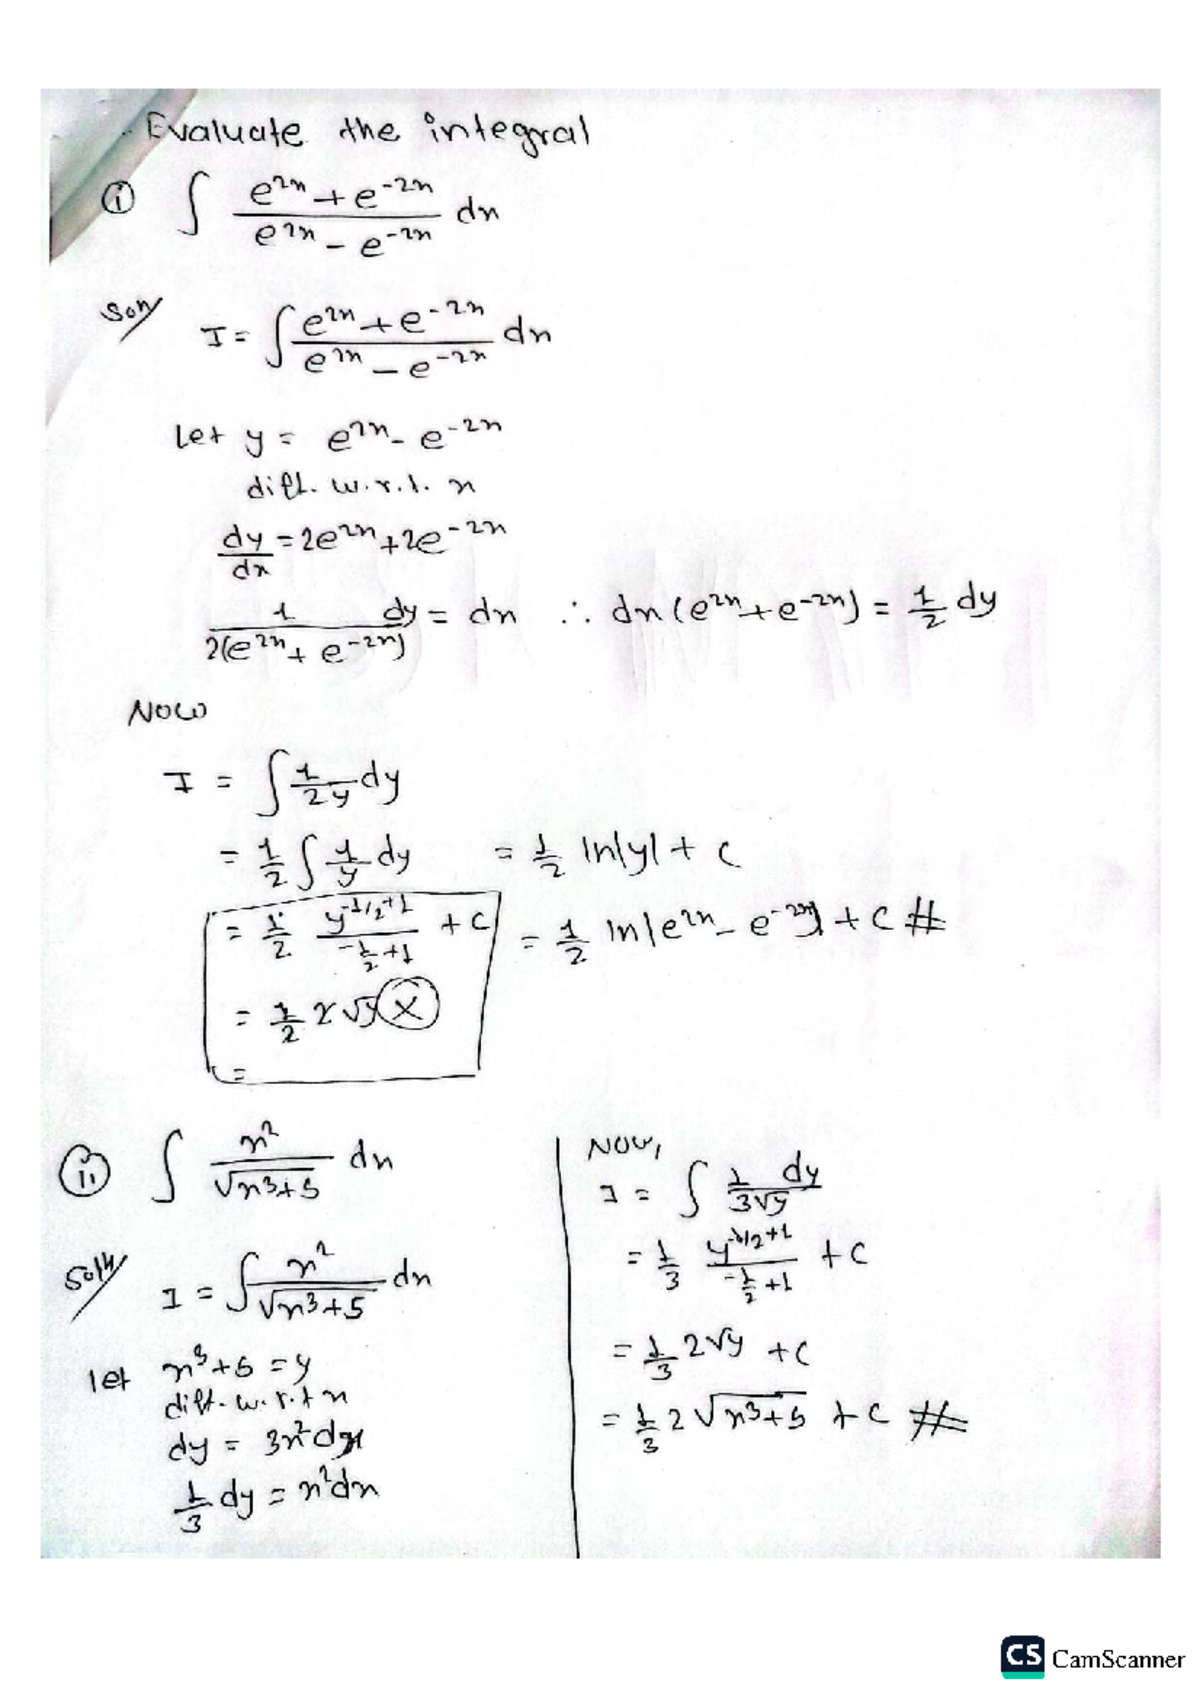 Evaluate the integral
(i) ∫ (e^{2x} + e^{-2x}) / (e^{2x} - e^{-2x}) dx
Soln
I = ∫ (e^{2x} + e^{-2x}) / (e^{2x} - e^{-2x}) dx
Let y = e^{2x} - e^{-2x}
diff. w.r.t. x
dy/dx = 2e^{2x} + 2e^{-2x}
1 / 2(e^{2x} + e^{-2x}) dy = dx ∴ dx(e^{2x} + e^{-2x}) = 1/2 dy
Now
I = ∫ 1/2y dy
= 1/2 ∫ 1/y dy = 1/2 ln|y| + c
= 1/2 y^{-1/2+1} / (-1/2+1) + c
= 1/2 ln|e^{2x} - e^{-2x}| + c #
= 1/2 2√y X
=
(ii) ∫ x² / √x³+5 dx
Soln
I = ∫ x² / √x³+5 dx
let x³+5 = y
diff. w.r.t x
dy = 3x²dx
1/3 dy = x²dx
Now,
I = ∫ 1/3√y dy
= 1/3 y^{-1/2+1} / (-1/2+1) + c
= 1/3 2√y + c
= 1/3 2√x³+5 + c #
CS CamScanner